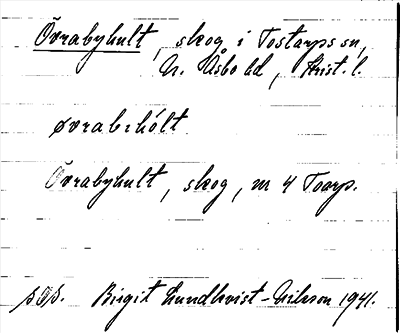 Övrabyhult, skog i Tostarps sn,
N. Åsbo hd, Krist. l.
øvrabɩhólt
Övrabyhult, skog, m 4 Toarp.
Birgit Lundkvist-Nilsson 1941.